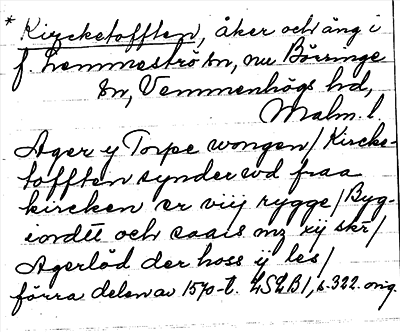 * Kircketofften, åker och äng i
f. Lemmeströ sn, nu Börringe
sn, Vemmenhögs hd,
Malm. l.
Ager y Torpe wongen / Kircke-
tofften synder ud fraa
kircken er viij rygge / Byg-
iordt och saais mz iij skr /
Agerlöd der hoss ij les /
förra delen av 1570-t. LSLB 1, s. 322. orig.